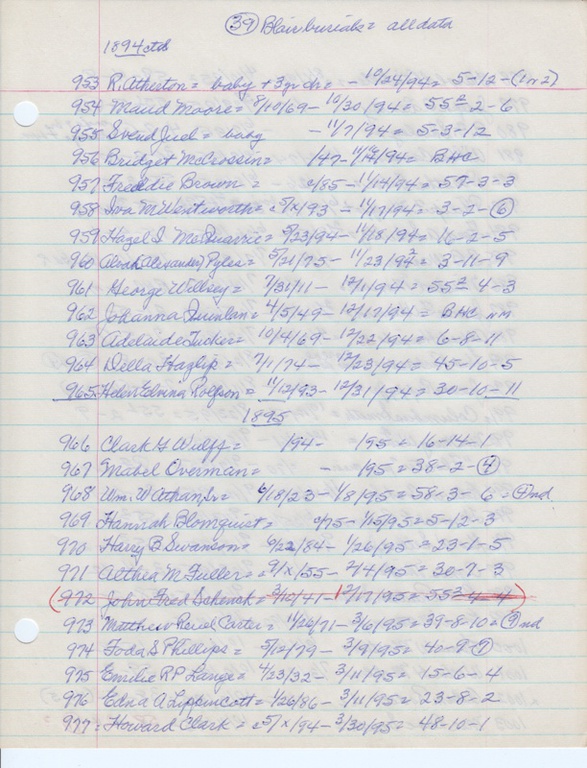 (39) Blair burials = all data
1894 ctd
953 R. Atherton = baby + 3 gr ch = - 10/24/94 = 5-12-(1 or 2)
954 Maud Moore = 8/10/69 - 10/30/94 = 55²-2-6
955 Svend Juel = - 11/7/94 = 5-3-12
956 Bridget McCrossin = /47 - 11/14/94 = BHC
957 Freddie Brown = c/85 - 11/14/94 = 57-3-3
958 Iva M Wentworth = c5/x/93 - 11/17/94 = 3-2-(6)
959 Hazel I. McQuarrie = 5/23/94 - 11/18/94 = 16-2-5
960 Alvah Alexander Pyles = 5/21/75 - 11/23/94 = 3-11-9
961 George Willsey = 7/31/11 - 12/1/94 = 55²-4-3
962 Johanna Quinlan = 4/5/49 - 12/17/94 = BHC nm
963 Adelaide Tucker = 10/4/69 - 12/22/94 = 6-8-11
964 Della Hazlip = 7/1/74 - 12/23/94 = 45-10-5
965 Helen Ednina Rolfson = 11/12/93 - 12/31/94 = 30-10-11
1895
966 Clark G Wulff = /94 - /95 = 16-14-1
967 Mabel Overman = - /95 = 38-2-(4)
968 Wm. W Athan Sr = 6/18/23 - 1/8/95 = 58-3-6 = (2)nd
969 Hannah Blomquist = c/75 - 1/15/95 = 5-12-3
970 Harry B Swanson = 6/22/84 - 1/26/95 = 23-1-5
971 Althia M Fuller = c9/x/55 - 2/4/95 = 30-7-3
(972 John Fred Schenck = 3/10/41 - 12/17/95 = 55²-4-4)
973 Matthew Revel Carter = 11/26/71 - 3/6/95 = 39-8-10 = (2)nd
974 Foda S Phillips = 5/12/79 - 3/9/95 = 40-9-(7)
975 Emilie R P Lange = 4/23/32 - 3/11/95 = 15-6-4
976 Edna A Lippincott = 1/26/86 - 3/11/95 = 23-8-2
977 = Howard Clark = c5/x/94 - 3/30/95 = 48-10-1